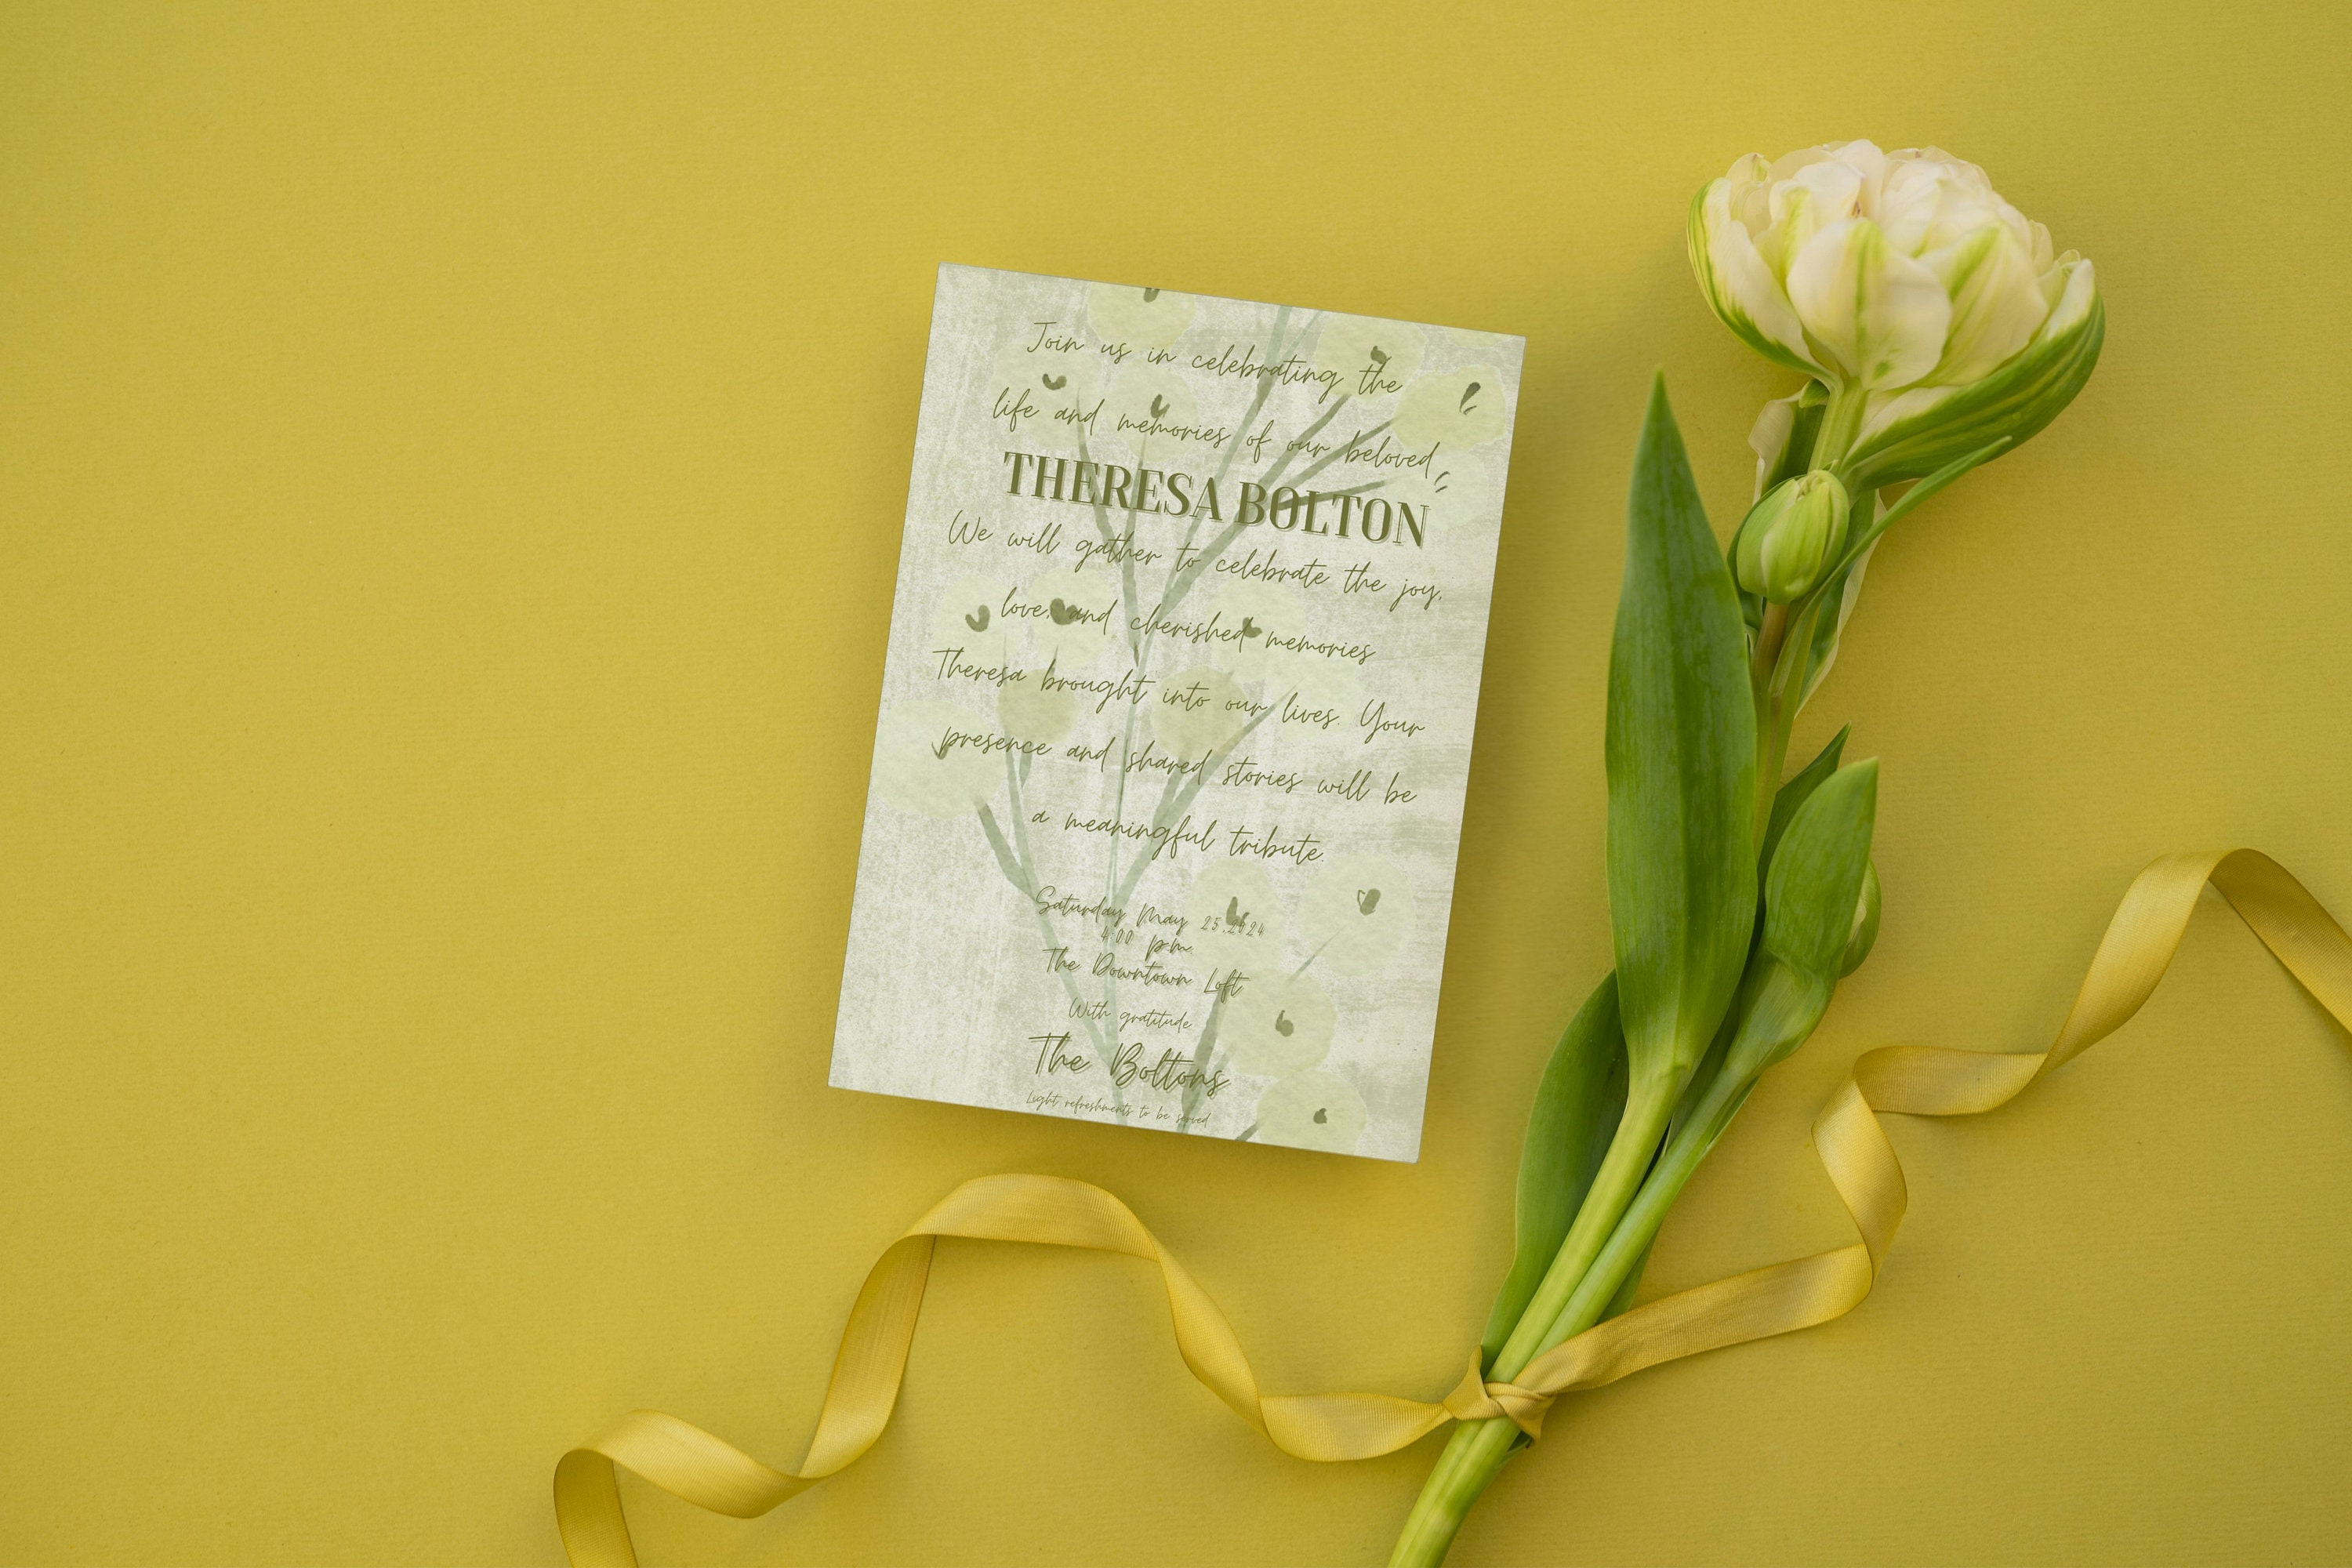 Join us in celebrating the
life and memories of our beloved
THERESA BOLTON
We will gather to celebrate the joy,
love, and cherished memories
Theresa brought into our lives. Your
presence and shared stories will be
a meaningful tribute.
Saturday May 25.2024
4:00 p.m.
The Downtown Loft
With gratitude
The Boltons
Light refreshments to be served